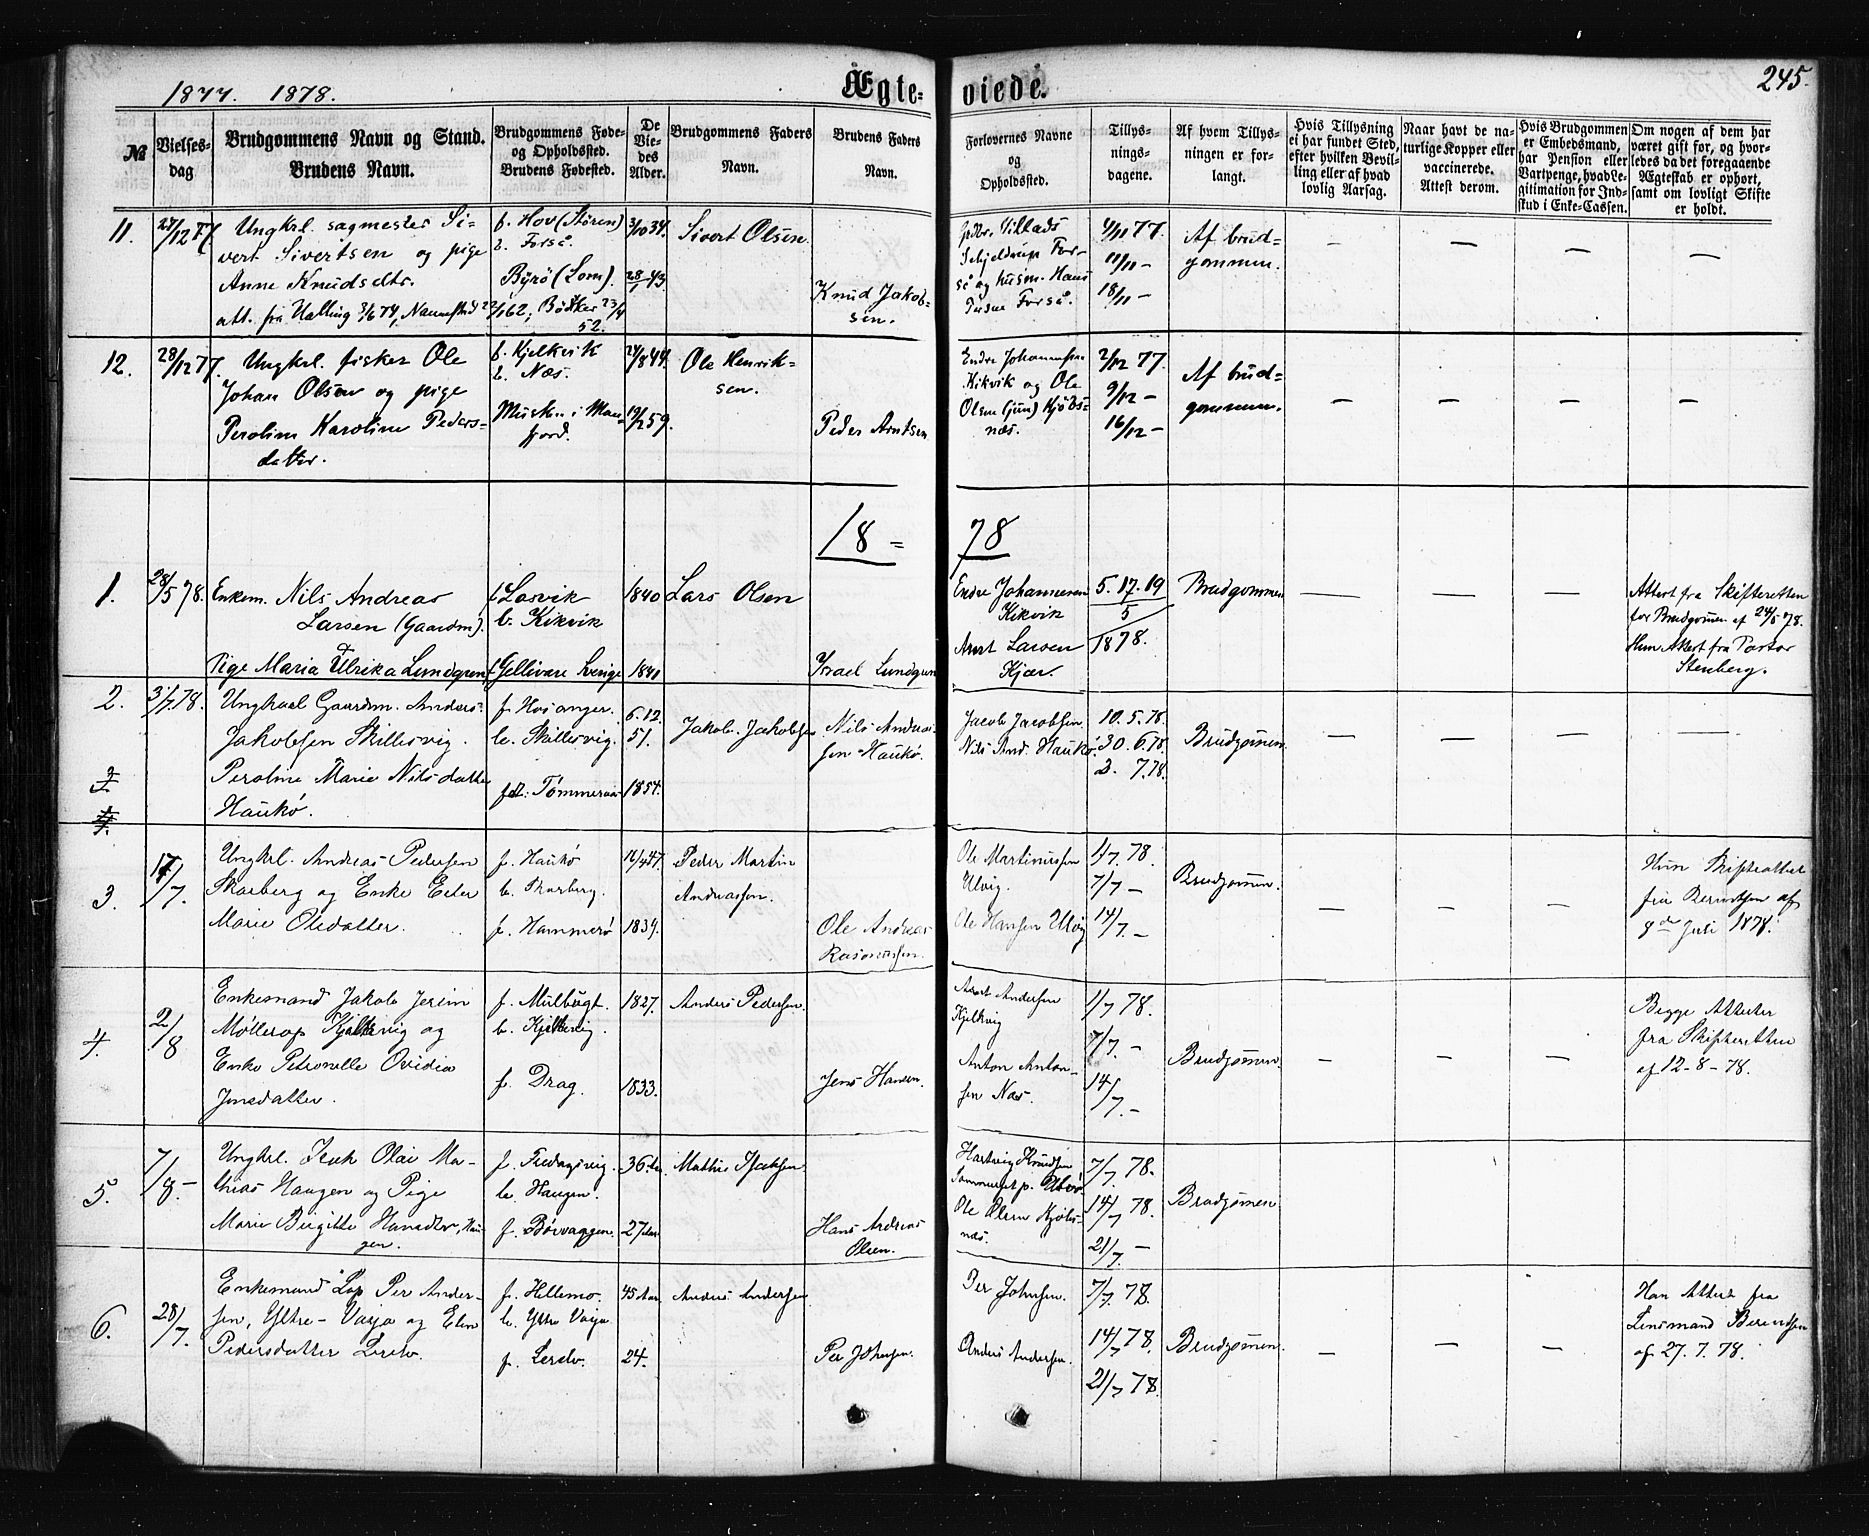 1877. 1878.
Ægteviede.
245.
№
Vielsesdag
Brudgommens Navn og Stand.
Brudens Navn.
Brudgommens Føde- og Opholdssted.
Brudens Fødested.
De Viedes Alder.
Brudgommens Faders Navn.
Brudens Faders Navn.
Forlovernes Navne og Opholdssted.
Tillysningsdagene.
Af hvem Tillysningen er forlangt.
Hvis Tillysning ei har fundet Sted, efter hvilken Bevilling eller af hvad lovlig Aarsag.
Naar havt de naturlige Kopper eller vaccinerede. Attest derom.
Hvis Brudgommen er Embedsmand, har Pension eller Vartpenge, hvad Legitimation for Indskud i Enke-Cassen.
Om nogen af dem har været gift for, og hvorledes da det foregaaende Ægteskab er ophørt, samt om lovligt Skifte er holdt.
11.
27/12 77.
Ungkrl. sagmester Si-
vert Sivertsen og pige
Anne Knudsdtr.
att. fra Hælling 3/6 74,
f. Hov (Støren)
b. Forså.
Byrø (Lom).
3/10 34.
28/1 43.
Sivert Olsen.
Knud Jakob-
sen.
Schjeldrup For-
så og husm. Hans
Forså.
4/11 77.
11/11 —
18/11 —
Af brud-
gommen.
12.
28/12 77.
Ungkrl. fisker Ole
Johan Olsen og pige
Peroline Karoline Peders-
datter.
f. Kjelkvik
b. Næs.
Musken i Man-
fjord.
24/8 44.
19/2 59.
Ole Henrik-
sen.
Peder Arntsen
Endre Johannessen
Kikvik og Ole
Olsen (jun) Kjøbs-
næs.
2/12 77.
9/12 —
16/12 —
Af brud-
gommen.
18 = 78
1.
28/5 78.
Enkem. Nils Andreas
Larsen (Gaardm).
Pige Maria Ulrika Lundgren
f. Losvik
b. Kikvik
f. Gellivare Sverige
1840
1840
Lars Olsen
Israel Lundgren
Endre Johannesen
Kikvik
Arnt Larsen
Kjær.
5. 17. 19
5
1878.
Brudgommen
Attest fra Skifteretten
for Brudgommen af 24/5 78.
Hun Attest fra Pastor
Stenberg.
2.
3/7 78.
Ungkarl Gaardm. Anders
Jakobsen Skillesvig.
Peroline Marie Nilsdatter
Haukø.
f. Hosanger.
b. Skillesvig.
fdt. Tømmeraas
6. 12.
51.
1854.
Jakob Jakobsen
Nils Andrea-
sen Haukø.
Jacob Jacobsen
Nils And. Haukø.
10. 5. 78.
30. 6. 78.
2. 7. 78.
Brudgomen.
3.
17/7.
Ungkrl. Andreas Pedersen
Skarberg og Enke Ellen
Marie Olsdatter.
f. Haukø
b. Skarberg.
f. Hammerø
16/4 47.
1839.
Peder Martin
Andreassen.
Ole Andreas
Rasmussen.
Ole Martinussen
Ulvig.
Ole Hansen Ulvig
1/7. 78.
7/7 —
14/7. —
Brudgomen.
Hun Skifteattest
fra Berntsen af
8de Juli 1878.
4.
2/8
Enkemand Jakob Jerim
Møllerop Kjelkvig og
Enke Petronelle Ovidia
Jensdatter.
f. Mulbugt.
b. Kjelkvig.
f. Drag.
1827.
1833.
Anders Pedersen.
Jens Hansen.
Arnt Andersen
Kjelkvig
Anton Anton-
sen Næs.
1/7 78.
7/7. —
14/7. —
Brudgomen.
Begge Attester
fra Skifteretten
af 12-8-78.
5.
7/8. —
Ungkrl. Isak Olai Ma-
thias Haugen og Pige
Marie Birgitte Hansdtr, Hau-
gen.
f. Fredagsvig.
b. Haugen.
f. Børvaagen.
36 Aar
27 Aar
Mathis Isaksen.
Hans Andreas
Olsen.
Hartvig Knudsen
Sommerset p. Ulvø
Ole Olsen Kjøbs-
næs.
7/7. 78.
14/7 78.
21/7. —
Brudgomen
6.
28/7.
Enkemand Lap Per Ander-
sen, Ytre-Vasja og Elen
Pedersdatter Lerelv.
f. Hellemo.
b. Ytre Vasja
f. Lerelv.
45 Aar.
24.
Anders Andersen
Per Johnsen.
Per Johnsen.
Anders Andersen.
7/7. 78.
14/7 78.
21/7 78.
Brudgomen.
Han Attest fra
Lensmand Berntsen
af 27. 7. 78.